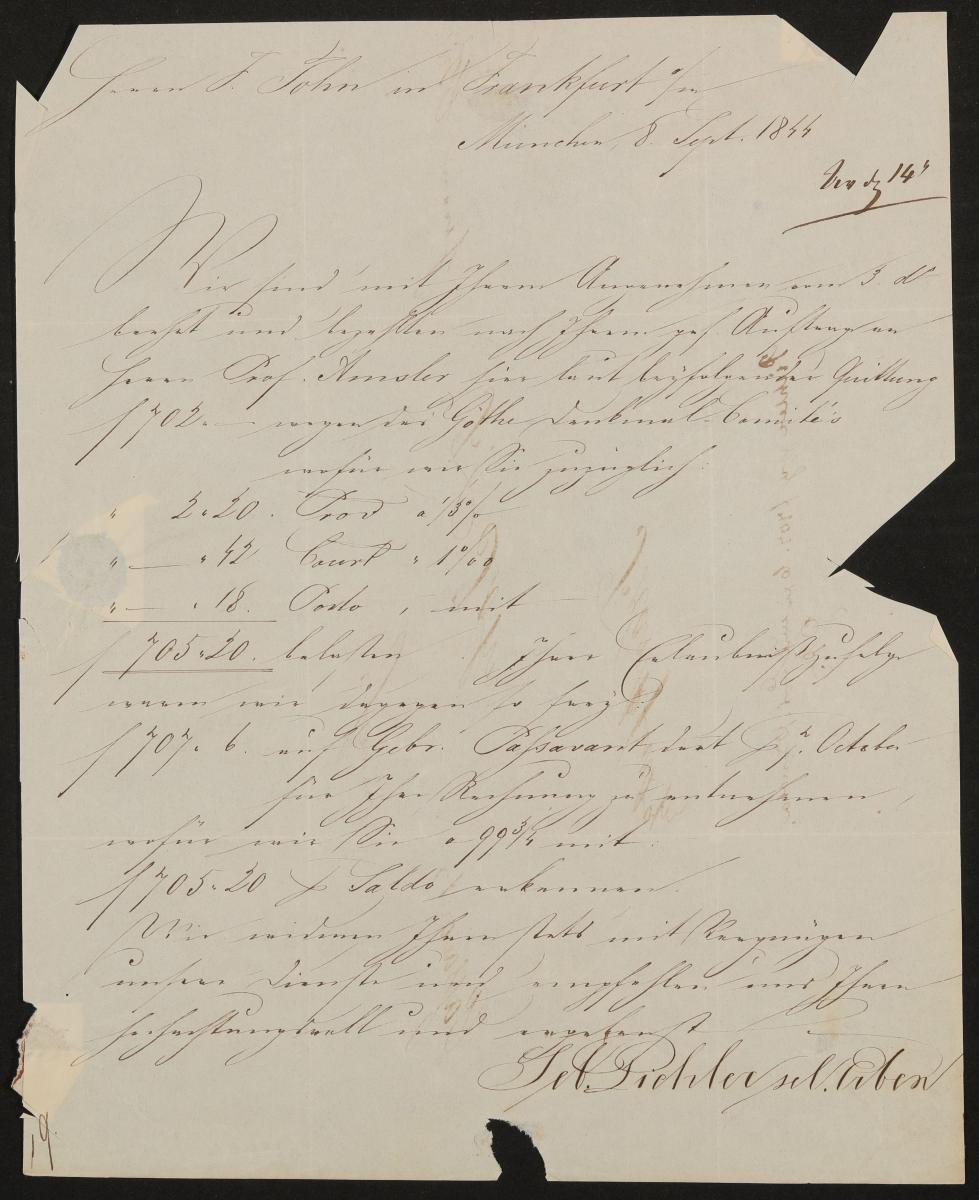 Herrn F. John in Frankfurt a/m
München, 8. Sept. 1844
14
Wir sind mit Ihrem Angenehmen vom 3. ds
beehrt und bezahlten nach Ihrem gef. Auftrag an
Herrn Prof. Amsler hier laut beyfolgender Quittung
f 702 „ — wegen des Göthe Denkmal-Comité's
wofür wir Sie zuzüglich:
„ 2 „ 20. Prov a 1/3 %
„ — „ 42 Court „ 1 ‰
„ — „ 18. Porto, mit
f 705 „ 20. belasten. Ihrer Erlaubniß zufolge
waren wir dagegen so frey:
f 707 „ 6. auf Gebr. Passavant dort p 7. October
für Ihre Rechnung zu entnehmen,
wofür wir Sie a 99 3/4 mit:
f 705 „ 20 p Saldo erkennen.
Wir widmen Ihnen stets mit Vergnügen
unsere Dienste und empfehlen uns Ihnen
hochachtungsvoll und ergebenst
Seb. Pichler sel. Erben
19.